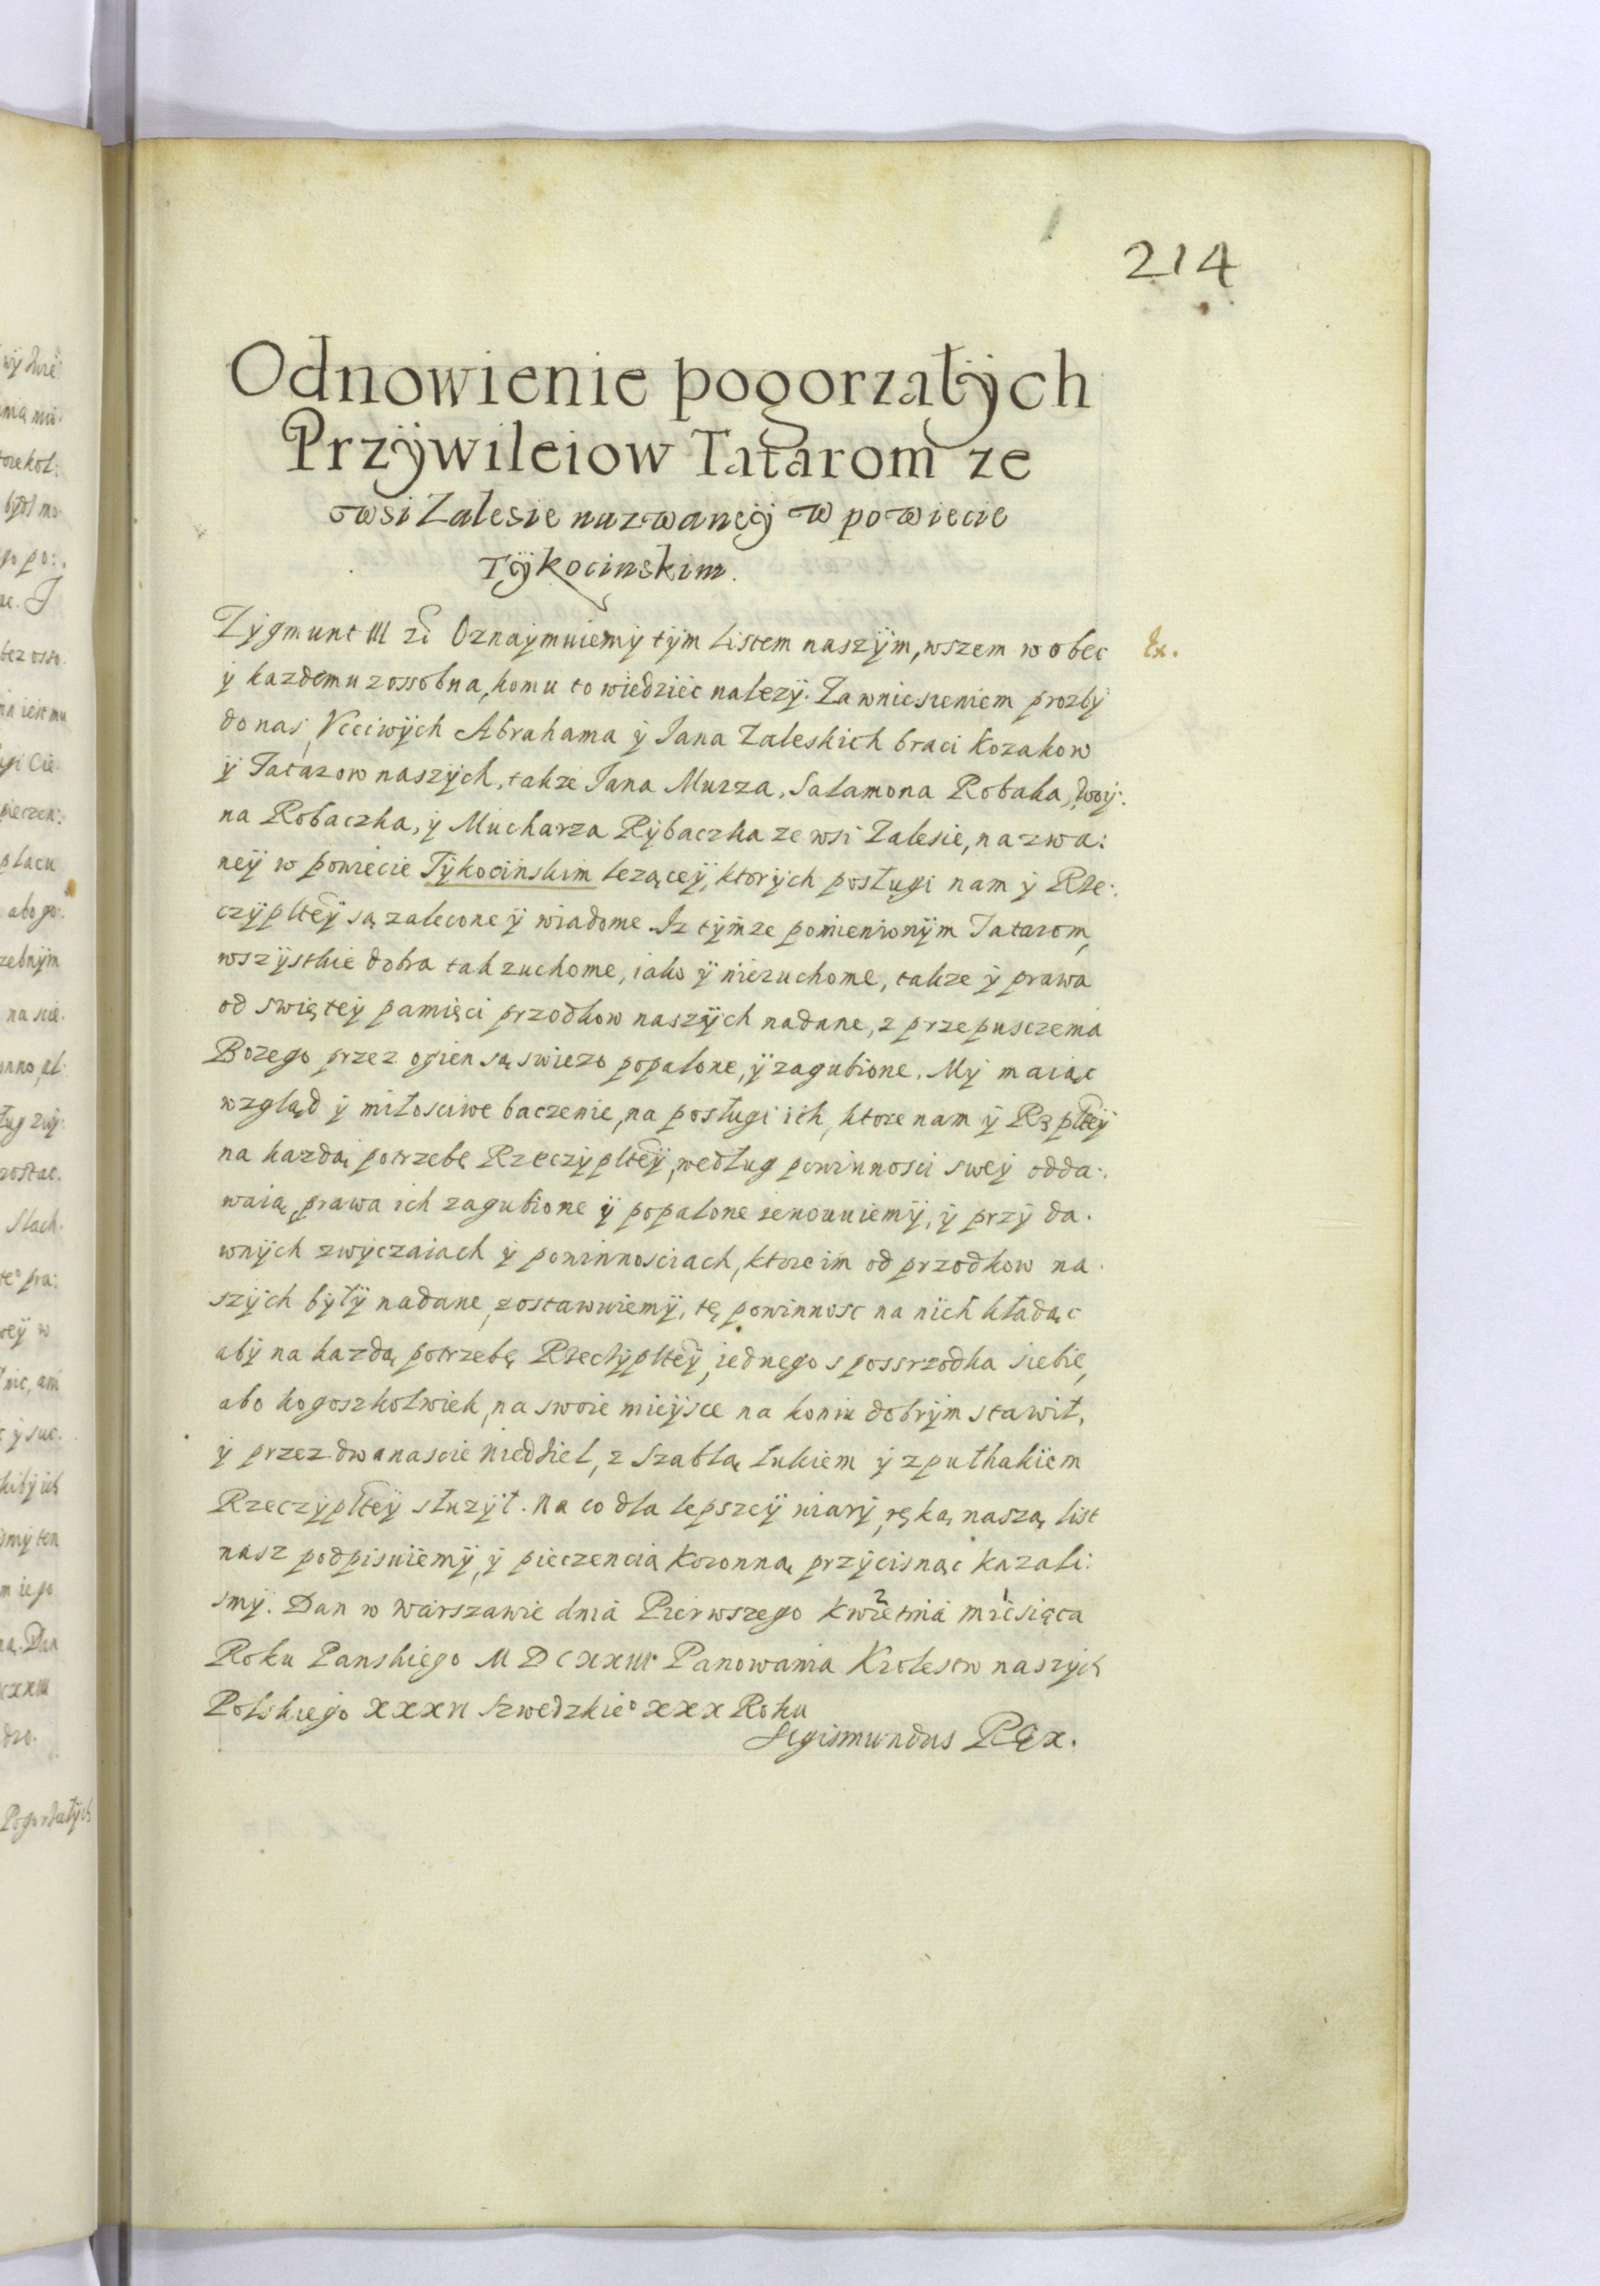 214
Odnowienie pogorzałÿch
Przÿwileiow Tatarom ze
wsi Zalesie nazwaneÿ w powiecie
Tÿkocinskim.
Zygmunt III Oznaÿmuiemÿ tÿm Listem naszÿm, wszem w obec
Ex.
ÿ kazdemu zossobna, komu to wiedziec nalezÿ. Za wniesieniem prozbÿ
do nas, Vcciwÿch Abrahama ÿ Jana Zaleskich braci Kozakow
ÿ Tatarow naszÿch, takze Jana Murza, Salamona Robaka, Woÿ:
na Robaczka, ÿ Mucharza Rÿbaczka ze wsi Zalesie, nazwa:
neÿ w powiecie Tÿkocinskim lezaceÿ, ktorÿch posługi nam ÿ Rze:
czÿplteÿ są zalecone ÿ wiadome. Iz tÿmze pomienionÿm Tatarom,
wszÿstkie dobra tak ruchome, iako ÿ nieruchome, takze ÿ prawa
od swięteÿ pamięci przodkow naszÿch nadane, z przepusczenia
Bozego przez ogien są swiezo popalone, ÿ zagubione. Mÿ maiąc
wzgląd ÿ miłosciwe baczenie, na posługi ich, ktore nam ÿ Rzplteÿ
na kazdą potrzebę Rzeczÿplteÿ, według powinnosci sweÿ odda:
waią, prawa ich zagubione ÿ popalone renowuiemÿ, ÿ przÿ da:
wnÿch zwÿczaiach ÿ powinnosciach, ktore im od przodkow na:
szÿch bÿłÿ nadane, zostawuiemÿ, tę powinnosc na nich kładąc
abÿ na kazdą potrzebę Rzechÿplteÿ, iednego s possrzodka siebie,
abo kogoszkolwiek, na swoie mieÿsce na koniu dobrÿm stawił,
ÿ przez dwanascie niedziel, z Szablą łukiem ÿ z pułhakiem
Rzeczÿplteÿ słuzÿł. Na co dla lepszeÿ wiarÿ, ręką naszą list
nasz podpisuiemÿ, ÿ pieczencią Koronną przÿcisnąc kazali:
smÿ. Dan w Warszawie dnia Pierwszego Kwietnia miesiąca
Roku Panskiego Panowania Krolestw naszÿch
Polskiego XXXVI Szwedzkie° XXX Roku
Sigismundus Rex.